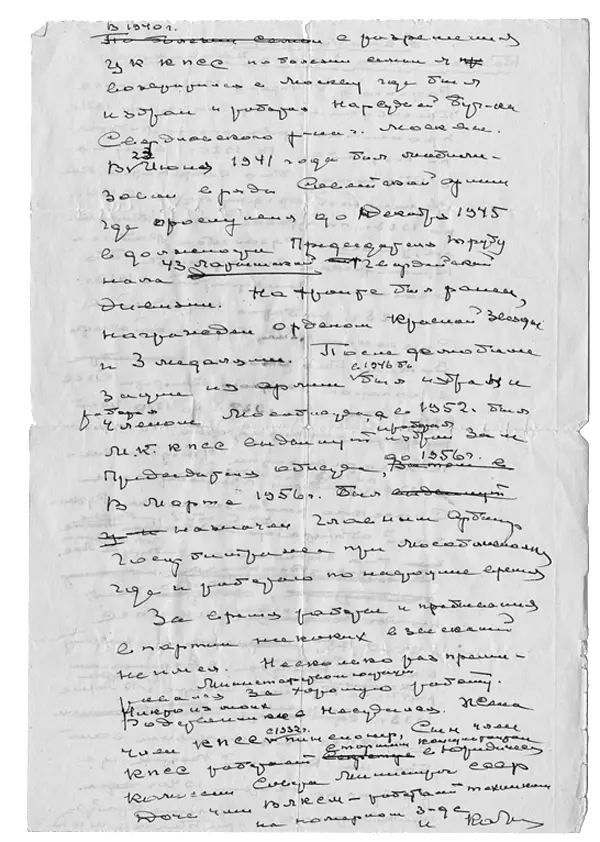 В 1940 г.
По болезни семьи с разрешения
ЦК КПСС по болезни семьи я
возвратился в Москву где был
избран и работал Народным Судьей
Свердловского р-на г. Москвы.
23
В Июня 1941 года был мобили-
зован в ряды Советской армии
где прослужил до Декабря 1945
в должности Председателя Трибу
нала 43 Латышской Гвардейской
дивизии. На фронте был ранен,
награжден орденом Красной Звезды
и 3 медалями. После демобили
зации из армии с 1946 был избран и
работал
членом Мособлсуда, а с 1952 г. был
МК КПСС выдвинут и избран Зам
работал
Председателя облсуда, до 1956 г. Затем в
В Марте 1956 г. был выдвинут
и назначен Главным Арбитр
Госарбитража при Мособлисполкоме
где и работаю по настоящее время
За время работы и пребывания
в партии никаких взысканий
не имел. Несколько раз преми-
Министерством юстиции
ровался за хорошую работу.
Никто из моих
Родственников не судился. Жена
член КПСС с 1932 г. пенсионер, Сын член
КПСС работает старшим консультантом в Юридической
Комиссии Совета Министров СССР
Дочь член ВЛКСМ – работает техником
на номерном з-де